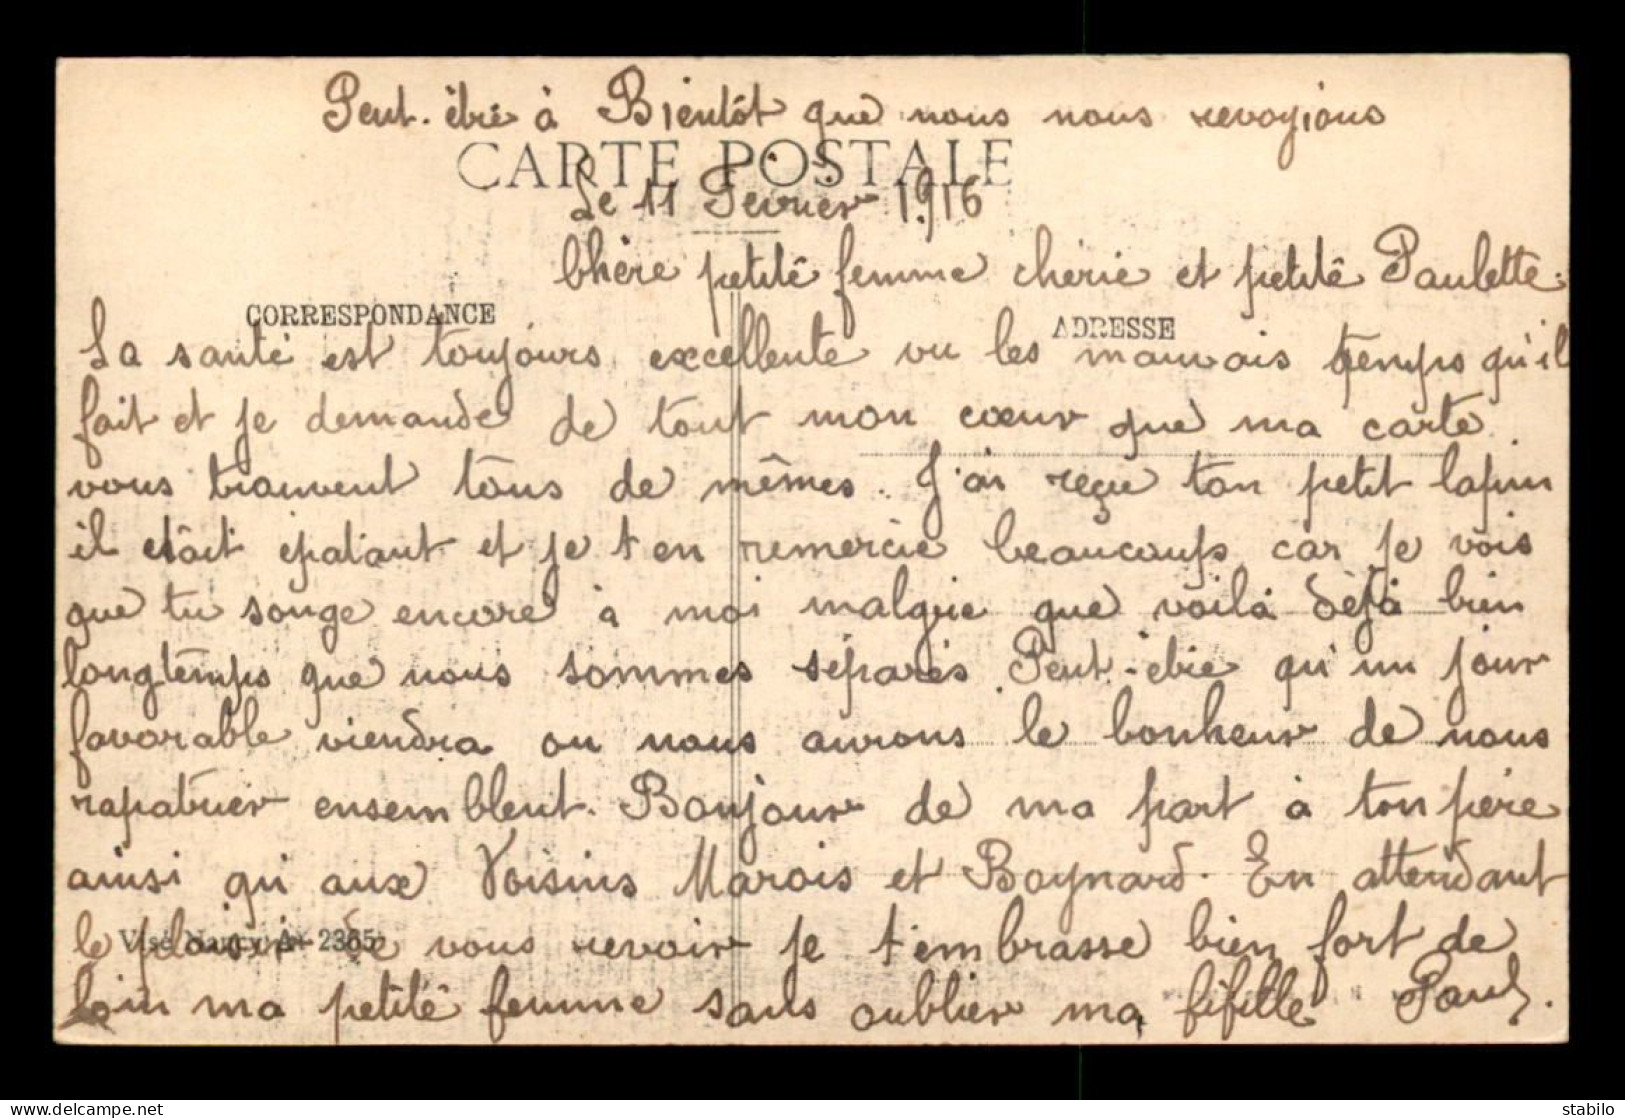 Peut-être à Bientôt que nous nous revoyions
CARTE POSTALE
Le 11 Fevrier 1916
Chère petite femme cherie et petite Paulette.
CORRESPONDANCE
ADRESSE
La santé est toujours excellente vu les mauvais temps qu'il
fait et je demande de tout mon cœur que ma carte
vous trouvent tous de mêmes. J'ai reçu ton petit lapin
il était epatant et je t'en remercie beaucoups car je vois
que tu songe encore à moi malgrè que voilà dèjà bien
longtemps que nous sommes séparés. Peut-être qu'un jour
favorable viendra ou nous aurons le bonheur de nous
rapatrier ensemblent. Bonjour de ma part à ton père
ainsi qu'aux Voisins Marois et Boynard. En attendant
le plaisir de vous revoir je t'embrasse bien fort de
Visé Nancy A+ 2365
loin ma petite femme sans oublier ma fifille Paul.
stabilo